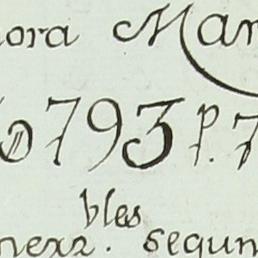 ora Mar
793 p. 7
bles
nexz. segun